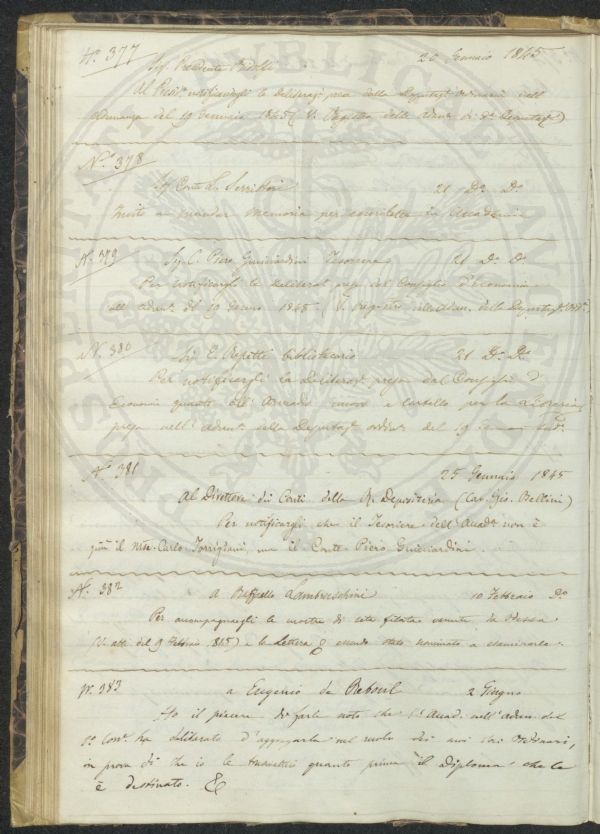 N.º 377
Sig. Presidente Ridolfi 20 Gennaio 1845
Al Presid.e notificandogli le deliberaz. prese dalla Deputaz.e Ordinaria nell'
adunanza del 19 Gennaio 1845 (V. Registro delle adunze di d.a Deputaz.e)
N.º 378
Sig. Conte L. Serristori 21 D.o D.o
Invito a mandar memoria per esser letta in Accademia
N.º 379 Sig. C. Piero Guicciardini Tesoriere 21 D.o D.o
Per notificargli le deliberaz. prese dal Consiglio d'Economia
nell' adunza del 19 Genno 1845. (V. Registro adunze della Deputaz.e Ord.a
N.º 380 Sig. E. Repetti bibliotecario 21 D.o D.o
Per notificargli la Deliberaz.e presa dal Consiglio d'
Economia quanto all' Armadio per la Libreria
presa nell' adunza della Deputaz.e ordin.a del 19 Gennaio
N.º 381 25 Gennaio 1845
Al Direttore dei Conti della R. Depositeria (Cav. Gio. Bellini)
Per notificargli che il Tesoriere dell' Accad.a non è
più il Mse Carlo Torrigiani, ma il Conte Piero Guicciardini.
N.º 382 a Raffaello Lambruschini 10 Febbraio D.o
Per accompagnargli le mostre di seta filata venute da Odessa
(V. atti del 9 Febbraio 1845) e la Lettera essendo stato nominato a esaminarle.
N.º 383 a Eugenio de Reboul 2 Giugno
Ho il piacere di farle noto che l'Accad. nell' adun. del
1.o Corr.e ha deliberato d'aggregarla nel ruolo dei suoi Soci Ordinari,
in prova di che io le trasmetterò quanto prima il Diploma che le
è destinato. &